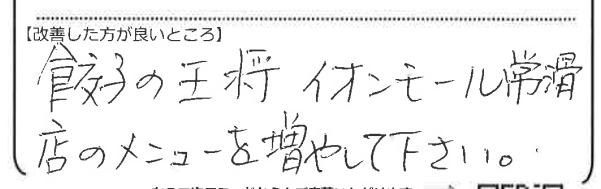 【改善した方が良いところ】
餃子の王将 イオンモール常滑
店のメニューを増やして下さい。